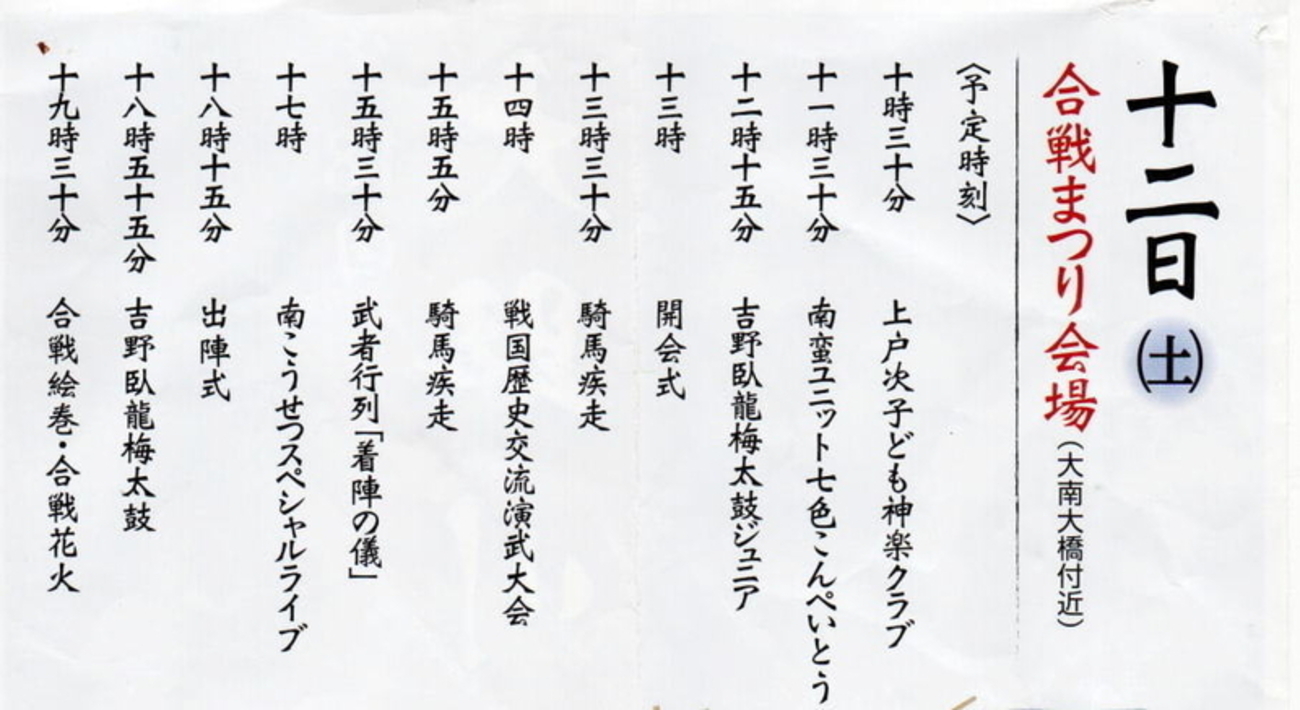 十二日(土)
合戦まつり会場(大南大橋付近)
〈予定時刻〉
十時三十分 上戸次子ども神楽クラブ
十一時三十分 南蛮ユニット七色こんぺいとう
十二時十五分 吉野臥龍梅太鼓ジュニア
十三時 開会式
十三時三十分 騎馬疾走
十四時 戦国歴史交流演武大会
十五時五分 騎馬疾走
十五時三十分 武者行列「着陣の儀」
十七時 南こうせつスペシャルライブ
十八時十五分 出陣式
十八時五十五分 吉野臥龍梅太鼓
十九時三十分 合戦絵巻・合戦花火